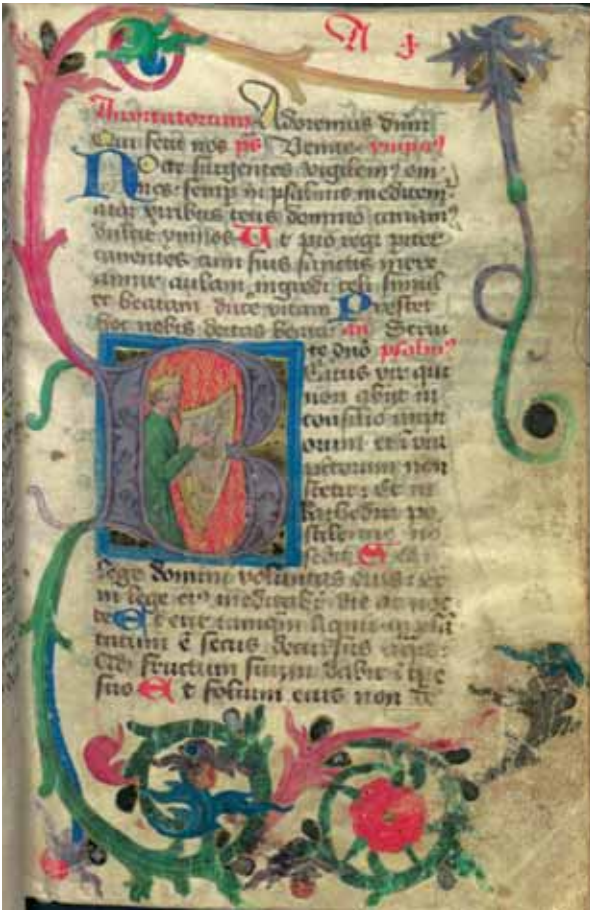 Invitatorium Adoremus dnm
Qui fecit nos ps Venite
surgentes vigilem⁹ om
nes semp in psalmis meditem
atqz viribus totis domino canam⁹
dulcit ymnos Ut pio regi pariter
canentes cum suis sanctis mere
amur aulam ingredi celi simul
et beatam ducē vitam Prestet
hoc nobis deitas beata an Servi
te dno psalm⁹
Beatus vir qui
non abijt in
consilio impi
orum et ī via
non
stetit et in
kathedra pe
stilencie nō
sedit Sed ī
lege domini voluntas eius et
in lege ei⁹ meditabit die ac noc
te Et erit tamqm lignū
tatum ē secus decursus aqr
fructum suum dabit ī tpe
suo Et folium eius non de